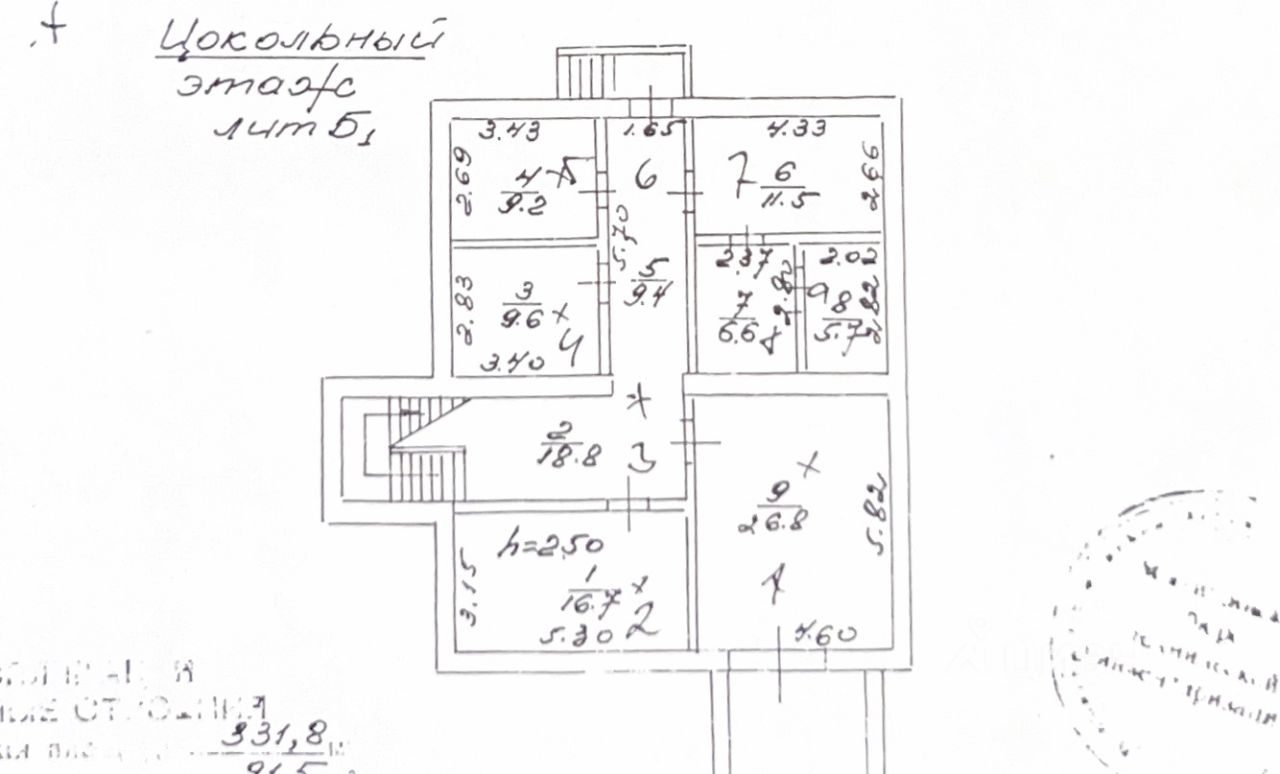 Цокольный
этаж
лит Б₁
3.43
1.65
4.33
2.69
4
9.2
5
6
7
6
11.5
2.66
5.70
2.83
3
9.6
4
3.40
5
9.4
2.37
7
6.6
8
2.82
2.02
9
8
5.7
2.82
2
18.8
3
9
26.8
5.82
1
4.60
h=2.50
3.15
1
16.7
2
5.30
331,8
91,5